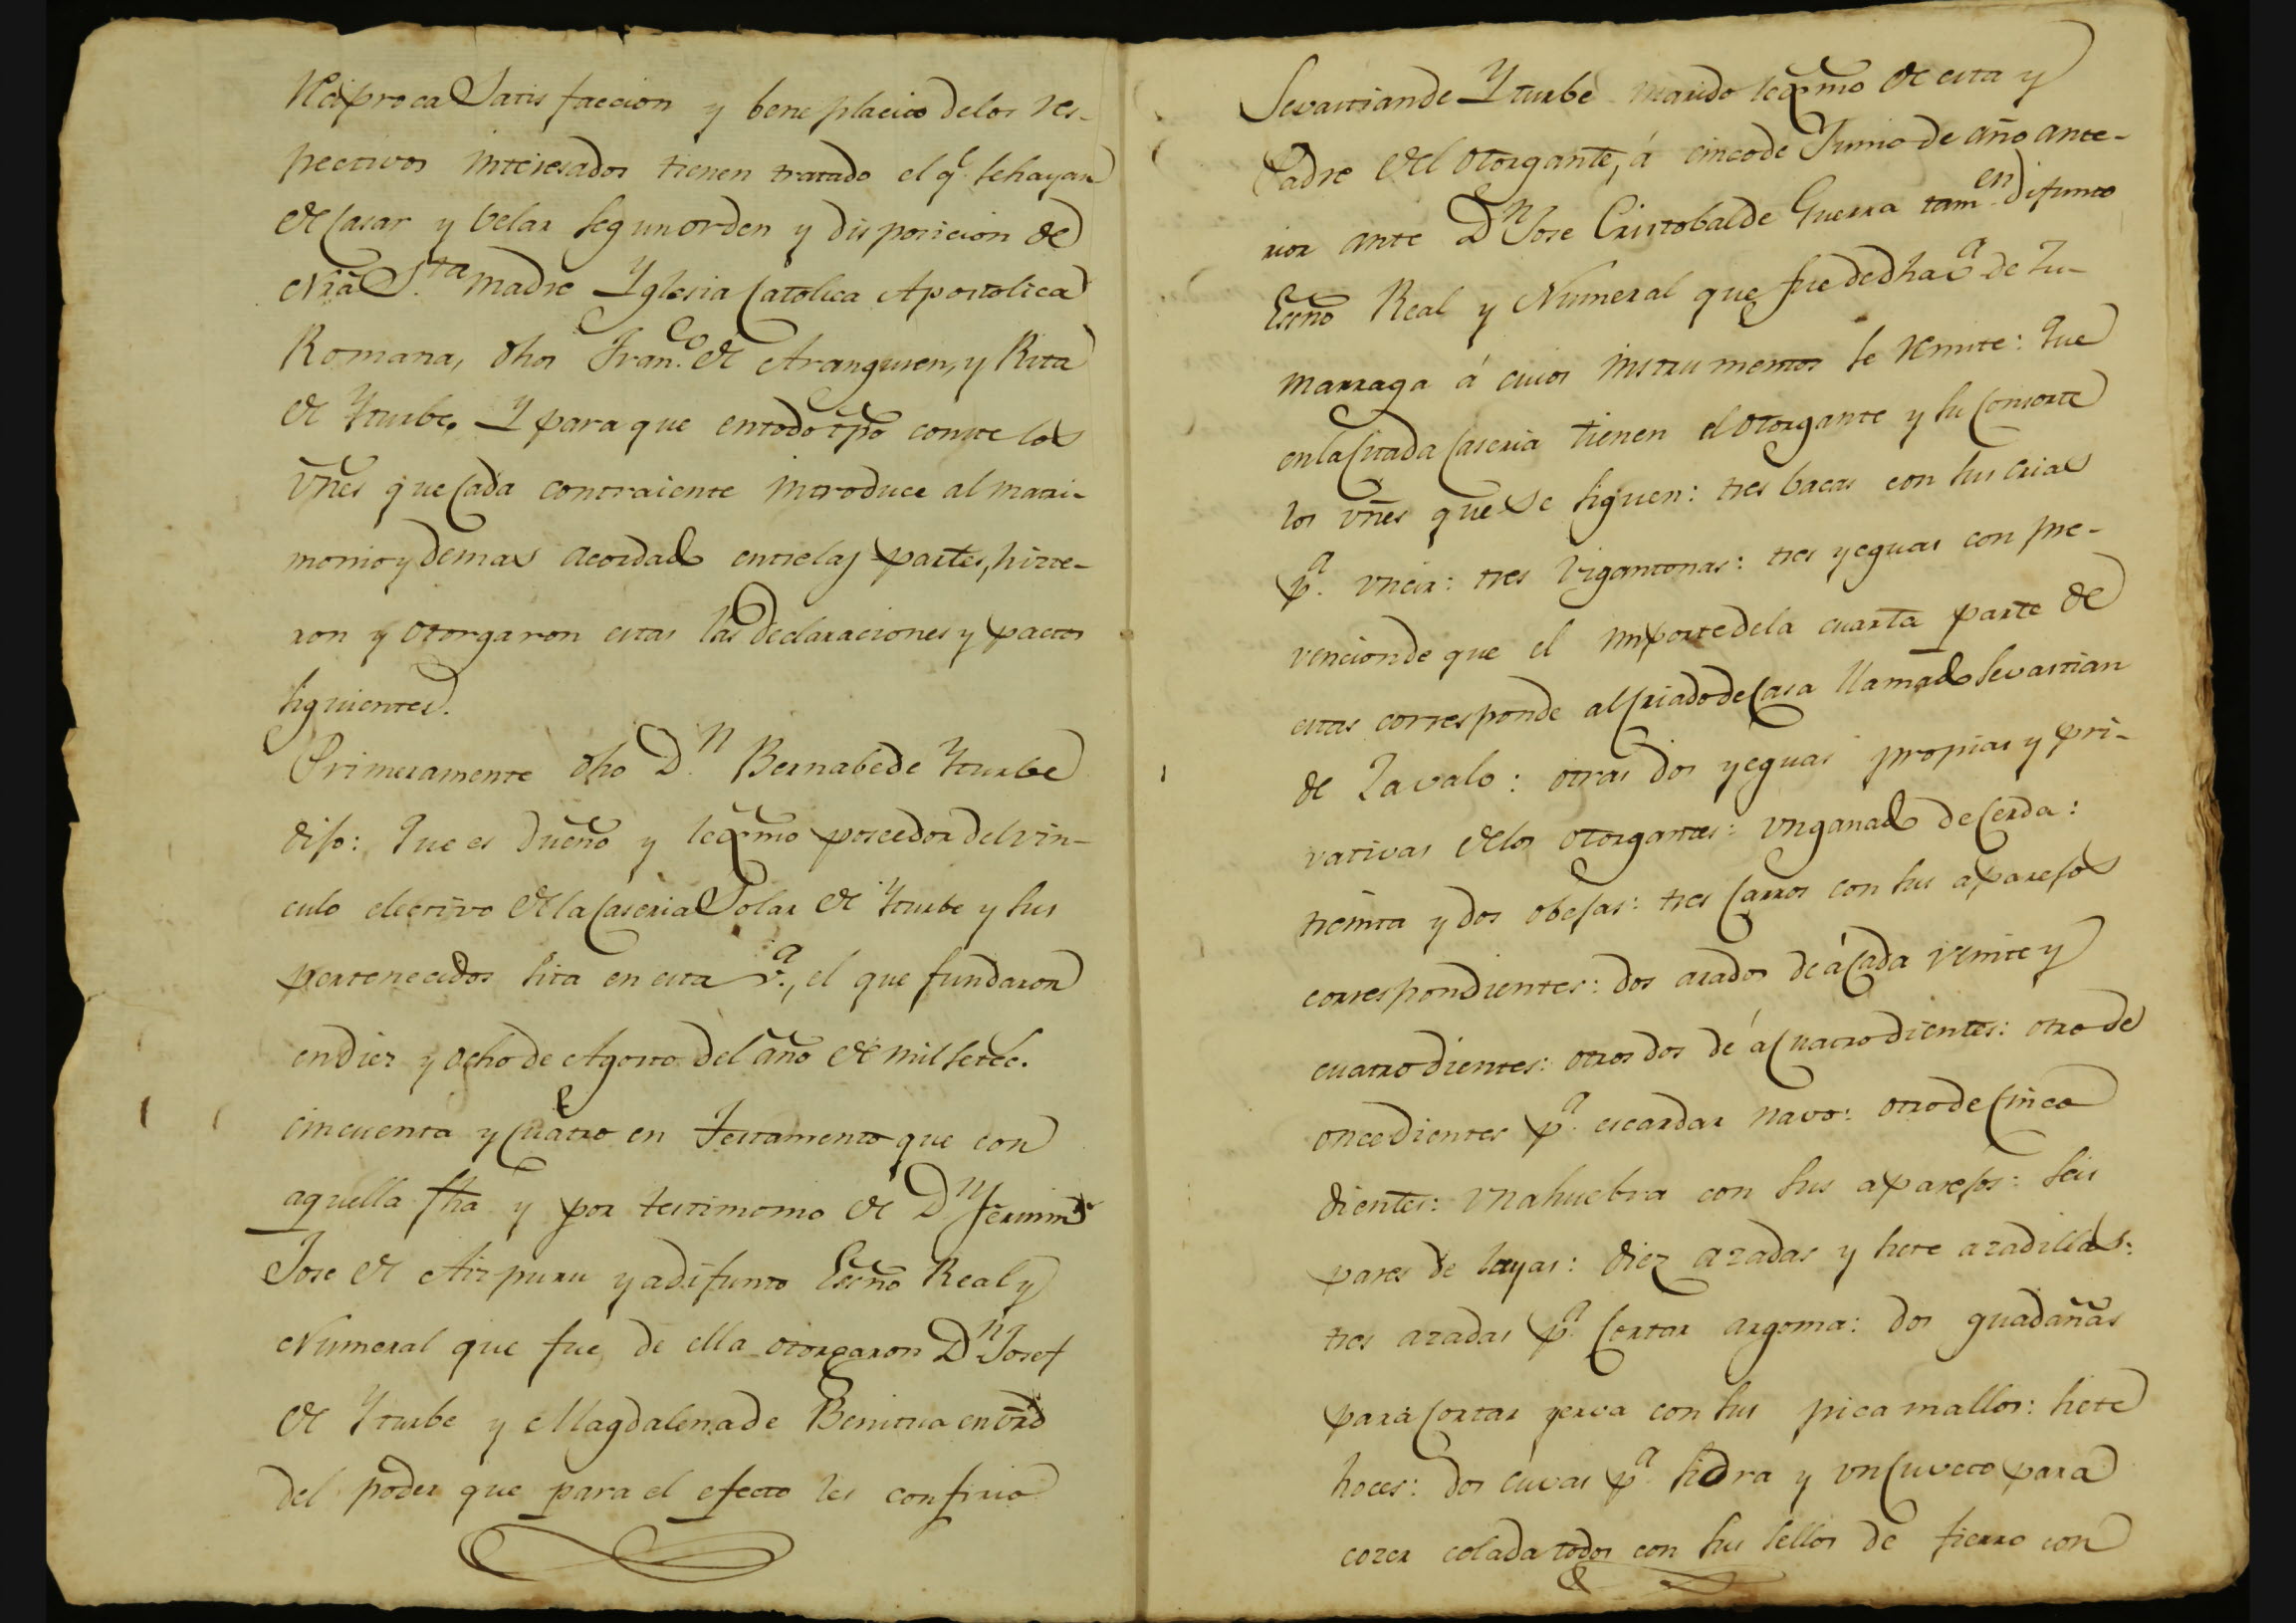 Reciproca Satisfaccion y beneplacito delos res-
pectivos interesados tienen tratado el q.e sehayan
de Casar y Velar segun orden y disposicion de
Nrã S.ta Madre Yglesia Catolica Apostolica
Romana, dhos Fran.co de Aranguren, y Rita
de Yturbe. Y para que entodo tpõ conste los
vñes que Cada contraiente introduce al matri-
monio y demas acordado entrelas partes, hizie-
ron y otorgaron estas las declaraciones y pactos
siguientes.
Primeramente dho D.n Bernabe de Yturbe
dijo: Que es dueño y legmõ poseedor del vin-
culo electivo dela Caseria Solar de Yturbe y sus
pertenecidos sita en esta v.a, el que fundaron
en diez y ocho de Agosto del año de mil setec.
cincuenta y Cuatro en Testamento que con
aquella fha y por testimonio de D.n Fermin
Jose de Aizpuru ya difunto Essnõ Real y
Numeral que fue de ella otorgaron D.n Josef
de Yturbe y Magdalena de Benitua en vrd
del poder que para el efecto les confirio
Sevastian de Yturbe marido legmõ de esta y
Padre del otorgante, á cinco de Junio de año ante-
rior ante D.n Jose Cristobal de Guerra tam.en difunto
Essnõ Real y Numeral que fue de dha v.a de Zu-
marraga á cuios instrumentos se remite: Que
en la Citada Caseria tienen el otorgante y su Consorte
los vñes que se siguen: tres bacas con sus crias
p.a uncir: tres vigantonas: tres yeguas con pre-
vencion de que el importe dela cuarta parte de
estas corresponde al Criado de Casa llamado Sevastian
de Zavalo: otras dos yeguas propias y pri-
vativas delos otorgantes: un ganado de Cerda:
treinta y dos obejas: tres Carros con sus aparejos
correspondientes: dos arados de á Cada veinte y
cuatro dientes: otros dos de á Cuatro dientes: otro de
once dientes p.a escardar navo: otro de Cinco
dientes: una huebra con sus aparejos: seis
pares de layas: diez azadas y siete azadillas:
tres azadas p.a Cortar argoma: dos guadañas
para Cortar yerva con sus picamallos: siete
hoces: dos cuvas p.a sidra y un Cuveto para
cozer colada todos con sus sellos de fierro con